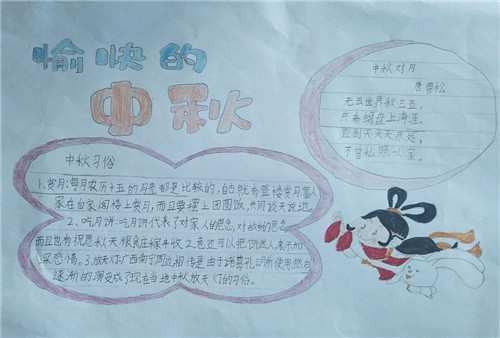 愉快的
中秋
中秋对月
唐曹松
无云世界秋三五,
共看蟾盘上海涯。
直到天头天尽处,
不曾私照一人家。
中秋习俗
1、赏月:每月农历十五的月亮都是比较的,自己就有登楼赏月富人
家在自家阁楼上赏月,而且要摆上团圆饭,共同谈天说地。
2、吃月饼:吃月饼代表了对家人的思念,对故乡的思念
而且也有祝愿秋天粮食庄家丰收之意还可以把饼送人表示的
深感情。3、放天灯广西南宁周边相传是由于诸葛孔明所使用然后
逐渐的演变成了现在当地中秋放天灯的习俗。